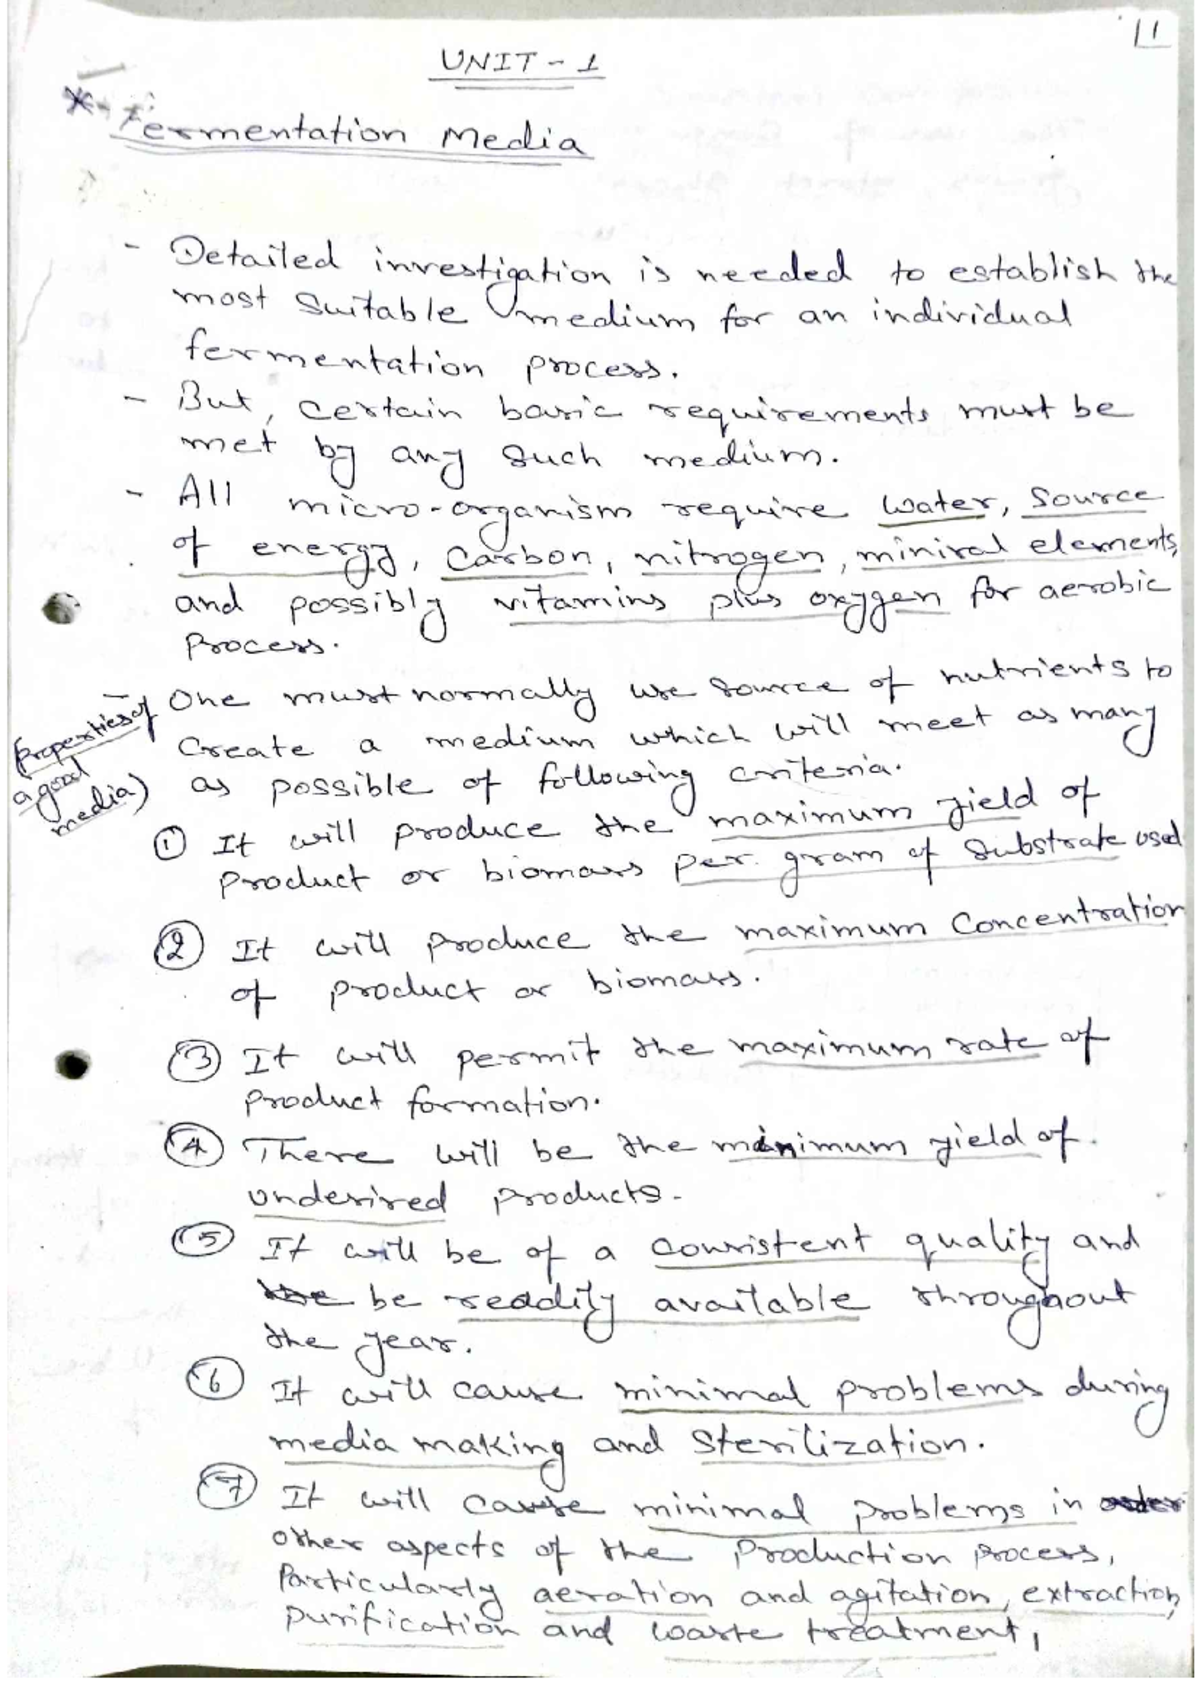 11
UNIT - 1
* Fermentation Media
- Detailed investigation is needed to establish the
most suitable medium for an individual
fermentation process.
- But, certain basic requirements must be
met by any such medium.
- All micro-organism require water, source
of energy, carbon, nitrogen, miniral elements,
and possibly vitamins plus oxygen for aerobic
process.
- One must normally use source of nutrients to
create a medium which will meet as many
as possible of following criteria.
Properties of
a good
media)
① It will produce the maximum yield of
product or biomass per gram of substrate used
② It will produce the maximum concentration
of product or biomass.
③ It will permit the maximum rate of
product formation.
④ There will be the minimum yield of
undesired products-
⑤ It will be of a consistent quality and
be readily available throughout
the year.
⑥ It will cause minimal problems during
media making and sterilization.
⑦ It will cause minimal problems in
other aspects of the production process,
Particularly aeration and agitation, extraction,
purification and waste treatment,